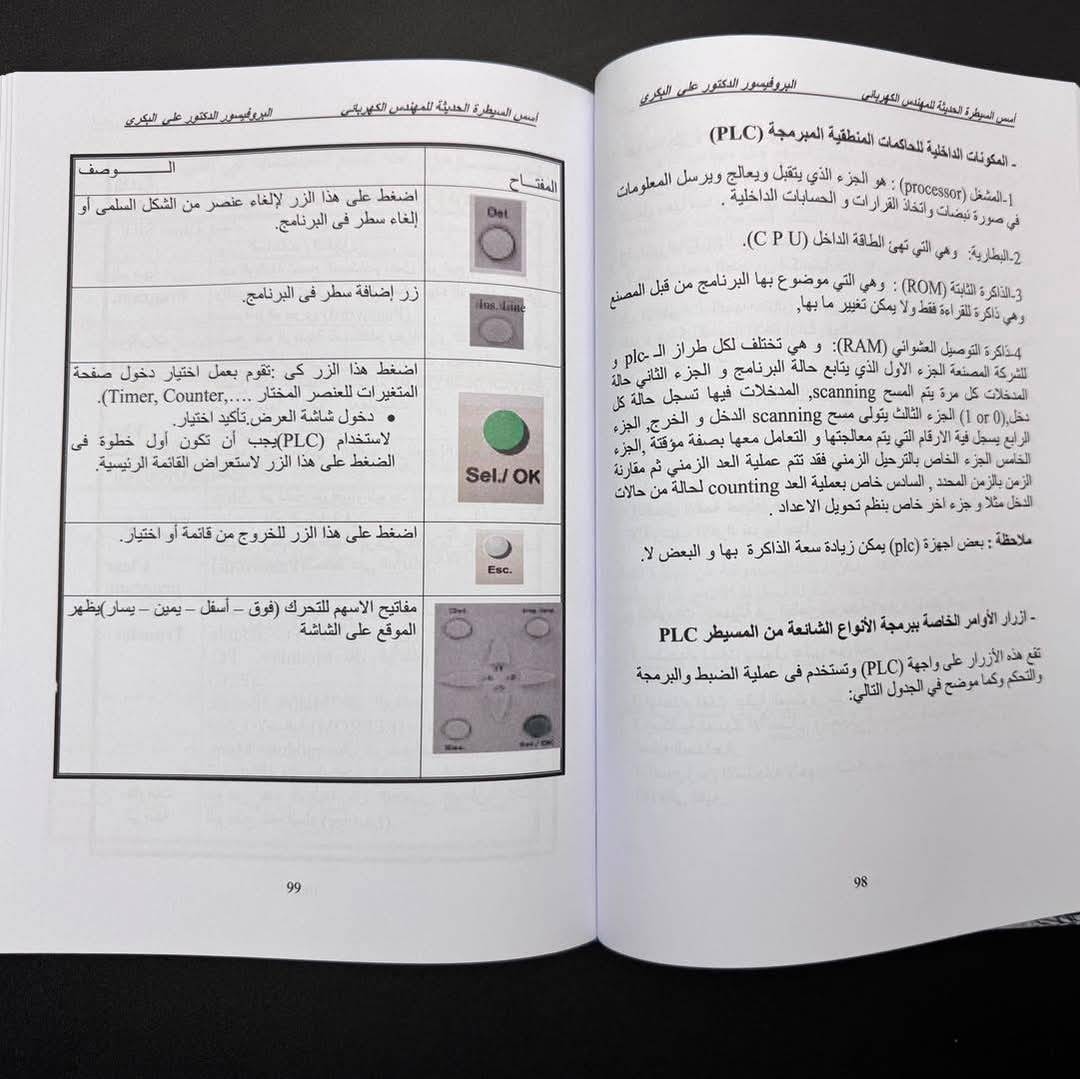 أسس السيطرة الحديثة للمهندس الكهربائي البروفيسور الدكتور علي البكري
- المكونات الداخلية للحاكمات المنطقية المبرمجة (PLC)
1-المشغل (processor) : هو الجزء الذي يتقبل ويعالج ويرسل المعلومات
في صورة نبضات واتخاذ القرارات و الحسابات الداخلية .
2-البطارية: وهي التي تهئ الطاقة الداخل (C P U).
3-الذاكرة الثابتة (ROM) : وهي التي موضوع بها البرنامج من قبل المصنع
وهي ذاكرة للقراءة فقط ولا يمكن تغيير ما بها,
4-ذاكرة التوصيل العشوائي (RAM): و هي تختلف لكل طراز الـ plc- و
للشركة المصنعة الجزء الاول الذي يتابع حالة البرنامج و الجزء الثاني حالة
المدخلات كل مرة يتم المسح scanning, المدخلات فيها تسجل حالة كل
دخل,(1 or 0) الجزء الثالث يتولى مسح scanning الدخل و الخرج, الجزء
الرابع يسجل فية الارقام التي يتم معالجتها و التعامل معها بصفة مؤقتة ,الجزء
الخامس الجزء الخاص بالترحيل الزمني فقد تتم عملية العد الزمني ثم مقارنة
الزمن بالزمن المحدد , السادس خاص بعملية العد counting لحالة من حالات
الدخل مثلا و جزء اخر خاص بنظم تحويل الاعداد .
ملاحظة : بعض اجهزة (plc) يمكن زيادة سعة الذاكرة بها و البعض لا.
- ازرار الأوامر الخاصة ببرمجة الأنواع الشائعة من المسيطر PLC
تقع هذه الأزرار على واجهة (PLC) وتستخدم فى عملية الضبط والبرمجة
والتحكم وكما موضح في الجدول التالي:
98
أسس السيطرة الحديثة للمهندس الكهربائي البروفيسور الدكتور علي البكري
المفتـــاح الـــــــوصف
Del.
اضغط على هذا الزر لإلغاء عنصر من الشكل السلمى أو
إلغاء سطر فى البرنامج.
Ins./Line
زر إضافة سطر فى البرنامج.
اضغط هذا الزر كى :تقوم بعمل اختيار دخول صفحة
المتغيرات للعنصر المختار ....,Timer, Counter).
• دخول شاشة العرض.تأكيد اختيار.
لاستخدام (PLC)يجب أن تكون أول خطوة فى
الضغط على هذا الزر لاستعراض القائمة الرئيسية.
Sel./ OK
اضغط على هذا الزر للخروج من قائمة أو اختيار.
Esc.
مفاتيح الاسهم للتحرك (فوق – أسفل – يمين – يسار)يظهر
الموقع على الشاشة
Sel./ OK
99